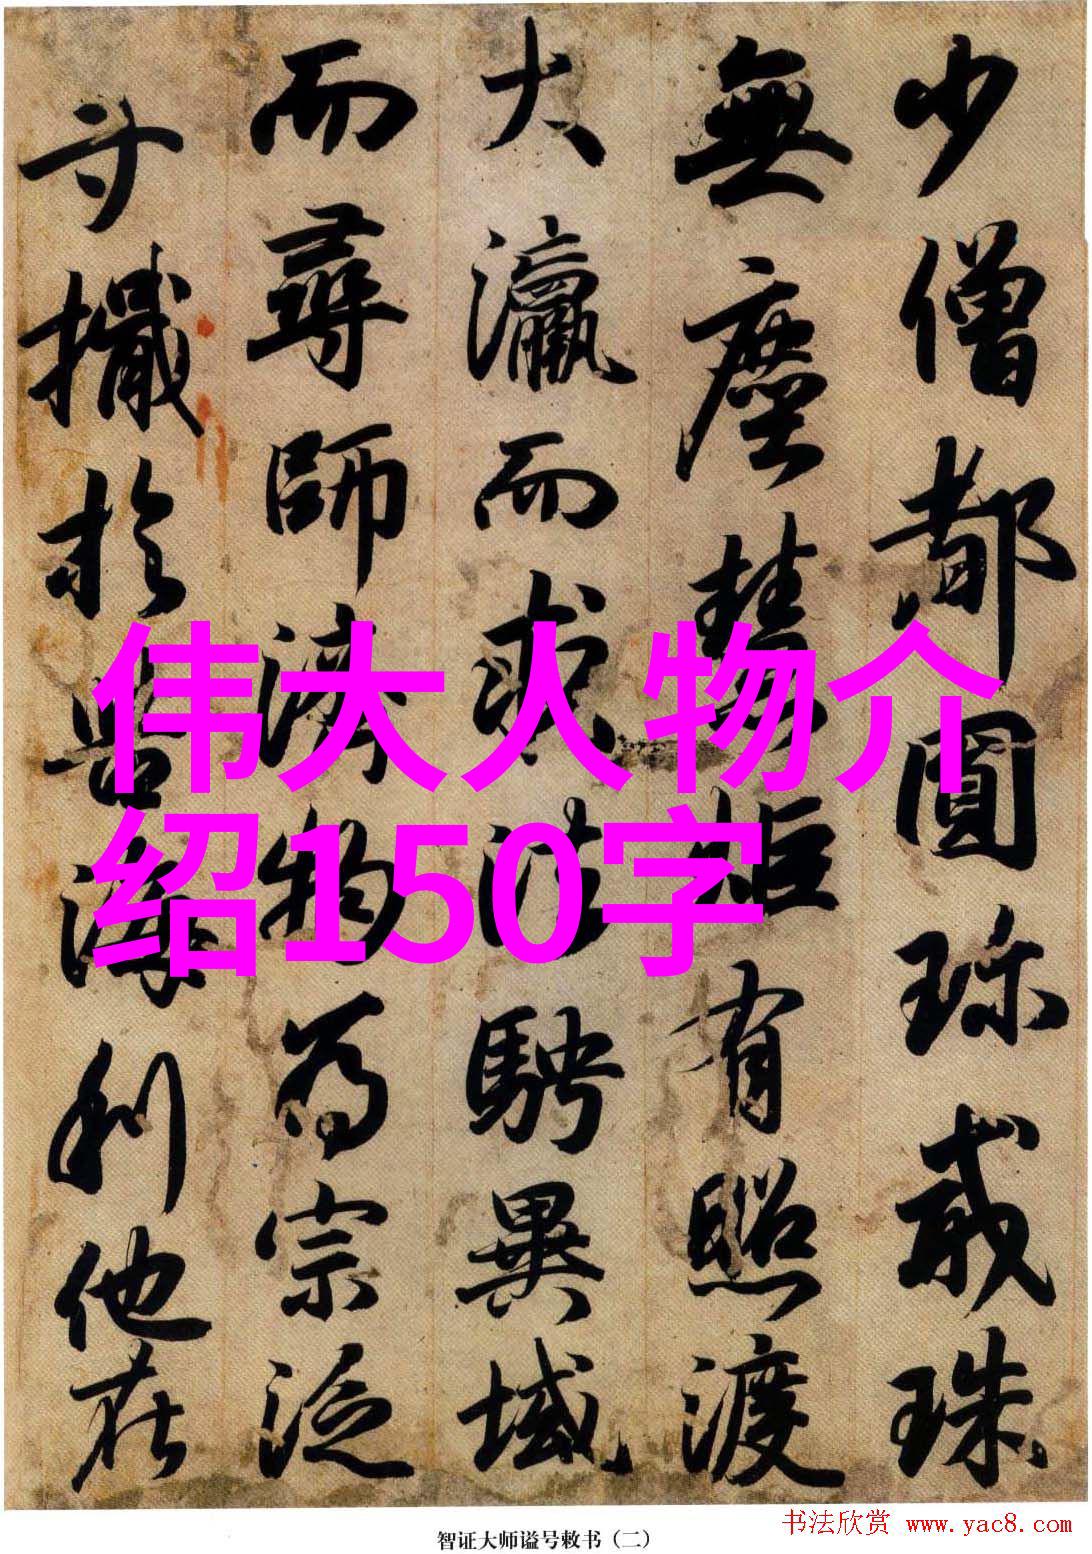 少僧都圓珎戒珠
無塵慧炬有照渡
大瀛而求法騁異域
而尋師濟物為宗泛
寸擶於巨海利他在
伟大人物介
绍150字
智证大师谥号敕书（二）
书法欣赏 www.yac8.com